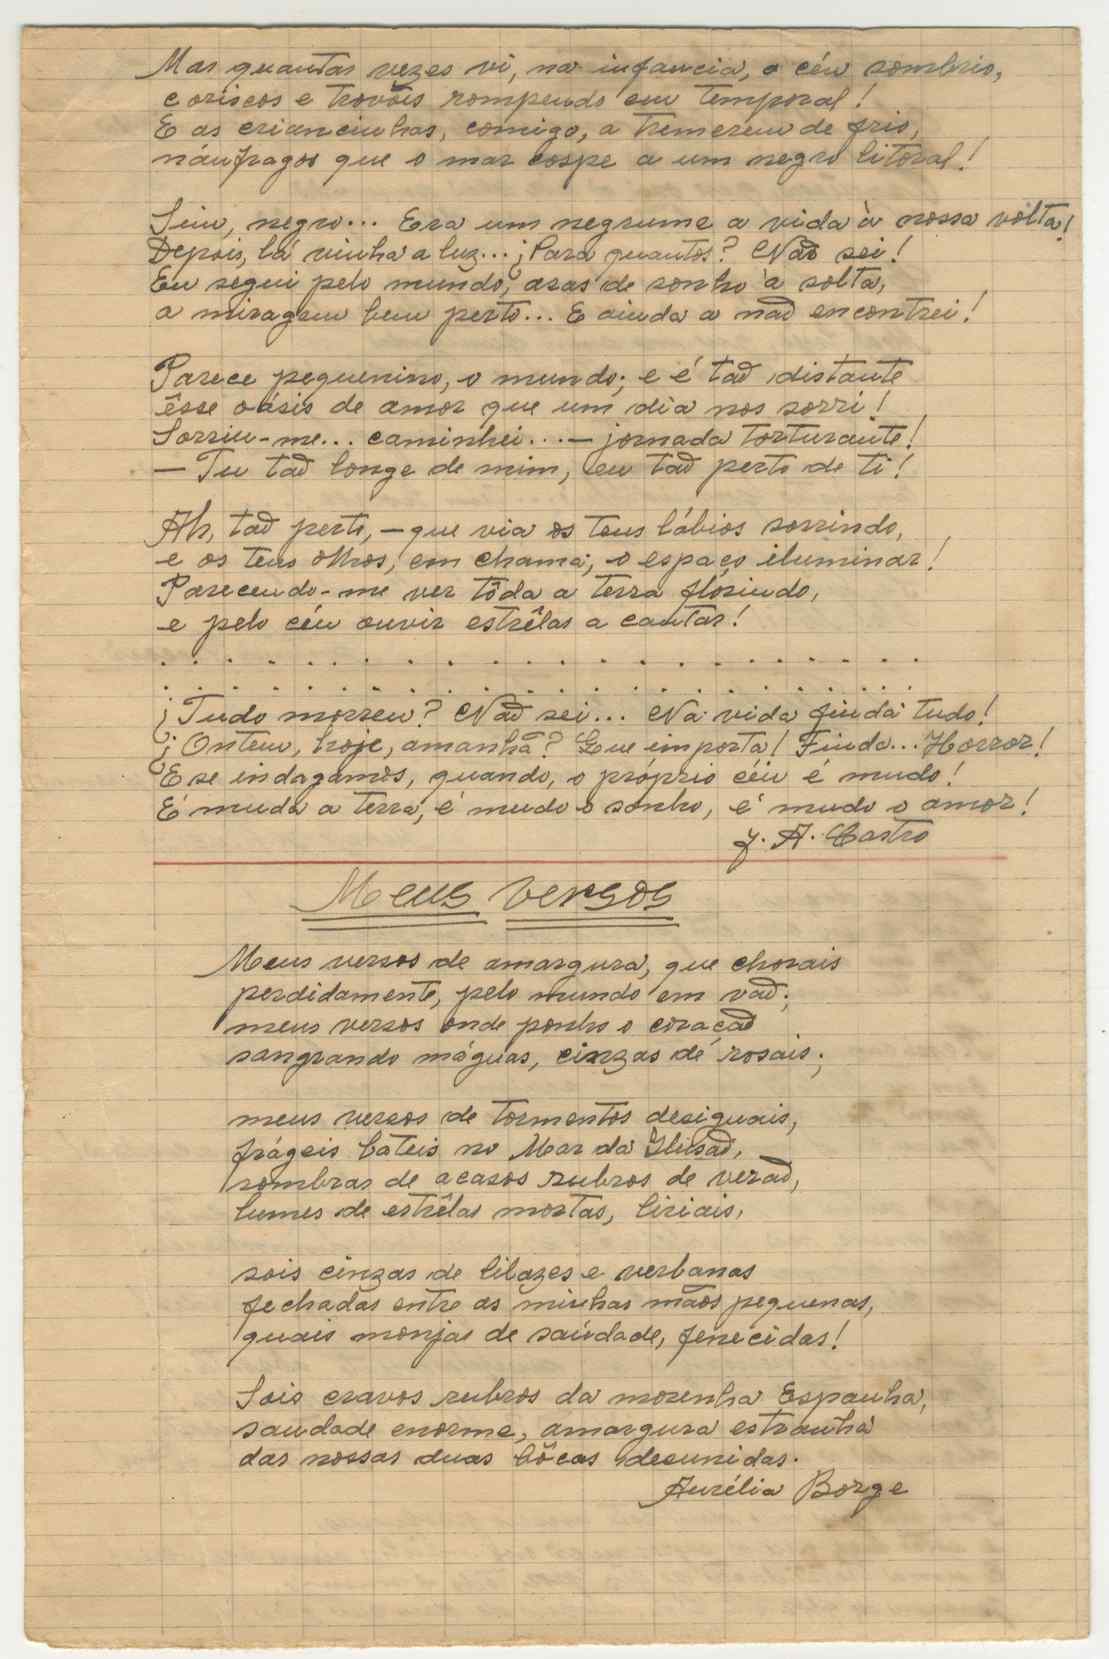 Mas quantas vezes vi, na infancia, o céu sombrio,
coriscos e trovões rompendo em temporal!
E as criancinhas, comigo, a tremerem de frio,
náufragos que o mar cospe a um negro litoral!
Sim, negro... Era um negrume a vida à nossa volta!
Depois, lá vinha a luz... ¿Para quantos? Não sei!
Eu segui pelo mundo, asas de sonho à solta,
a miragem bem perto... E ainda a não encontrei!
Parece pequenino, o mundo; e é tão distante
êsse oásis de amor que um dia nos sorri!
Sorriu-me... caminhei... — jornada torturante!
— Tu tão longe de mim, eu tão perto de ti!
Ah, tão perto, — que via os teus lábios sorrindo,
e os teus olhos, em chama, o espaço iluminar!
Parecendo-me ver tôda a terra florindo,
e pelo céu ouvir estrêlas a cantar!
. . . . . . . . . . . . . . . . . . . . . . . .
. . . . . . . . . . . . . . . . . . . . . . . .
¿Tudo morreu? Não sei... Na vida finda tudo!
¿Ontem, hoje, amanhã? Que importa! Finda... Horror!
E se indagamos, quando, o próprio céu é mudo!
É muda a terra, é mudo o sonho, é mudo o amor!
J. A. Castro
Meus versos
Meus versos de amargura, que chorais
perdidamente, pelo mundo em vão;
meus versos onde ponho o coração
sangrando máguas, cinzas de rosais;
meus versos de tormentos desiguais,
frágeis batéis no Mar da Ilusão,
sombras de acasos rubros de verão,
lumes de estrêlas mortas, liriais,
sois cinzas de lilazes e verbanas
fechadas entre as minhas mãos pequenas,
quais monjas de saüdade, fenecidas!
Sois cravos rubros da morenha Espanha,
saudade enorme, amargura estranha
das nossas duas bôcas desunidas.
Aurélia Borge